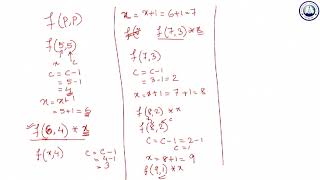 f(p,p)
f(5,5)
x c
c = c-1
= 5-1
= 4
x = x+1
= 5+1 = 6
f(6,4) * x
f(x,4) c = c-1
= 4-1
= 3
x = x+1 = 6+1 = 7
f(7,3) * x
f(7,3)
c = c-1
= 3-1 = 2
x = x+1 = 7+1 = 8
f(8,2) * x
f(8,2)
c = c-1 = 2-1
c = 1
x = 8+1 = 9
f(9,1) * x